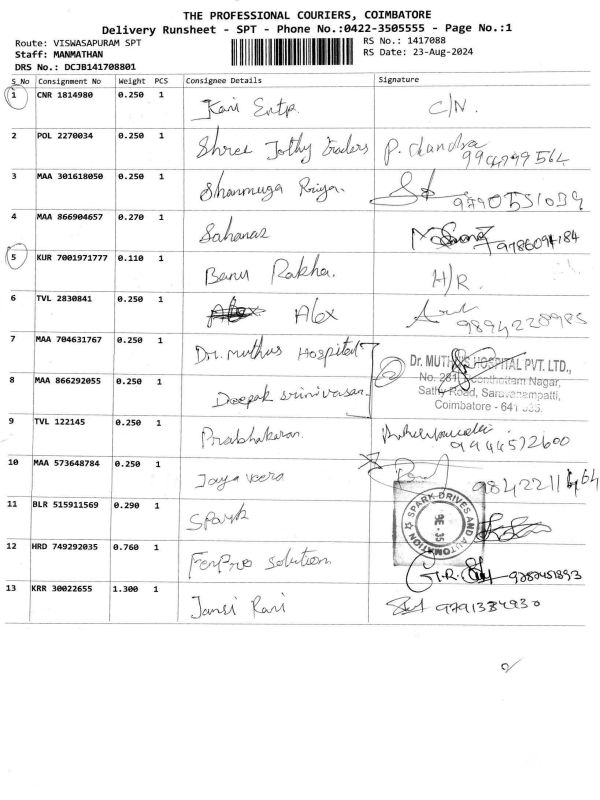 THE PROFESSIONAL COURIERS, COIMBATORE
Delivery Runsheet - SPT - Phone No.:0422-3505555 - Page No.:1
Route: VISWASAPURAM SPT RS No.: 1417088
Staff: MANMATHAN RS Date: 23-Aug-2024
DRS No.: DCJB141708801
S_No Consignment No Weight PCS Consignee Details Signature
1 CNR 1814980 0.250 1 Kani Entp. C/N.
2 POL 2270034 0.250 1 Shree Jothy traders P. chandra
3 MAA 301618050 0.250 1 Shanmuga Priya.
4 MAA 866904657 0.270 1 Sahanas 9786094184
5 KUR 7001971777 0.110 1 Banu Rakha. H/R.
6 TVL 2830841 0.250 1 Alex Alex 9894228985
7 MAA 704631767 0.250 1 Dr. Muthus Hospital
Dr. MUTHUS HOSPITAL PVT. LTD.,
No. Nagar,
8 MAA 866292055 0.250 1 Deepak srinivasan.
Sathy Road, Saravanampatti,
Coimbatore - 641 035.
9 TVL 122145 0.250 1 Prabhakaran. 9944572600
10 MAA 573648784 0.250 1 Jaya veera
11 BLR 515911569 0.290 1 Spark
SPARK DRIVES AND AUTOMATION
12 HRD 749292035 0.760 1 FenPro solution.
13 KRR 30022655 1.300 1 Jansi Rani